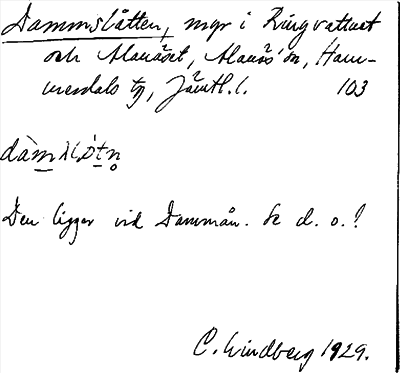 Dammslåtten, mgr i Ringvattnet
och Alanäset, Alanäs sn, Ham-
merdals tg, Jämtl. l. 103
Den ligger vid Dammån. Se d. o.!
C. Lindberg 1929.